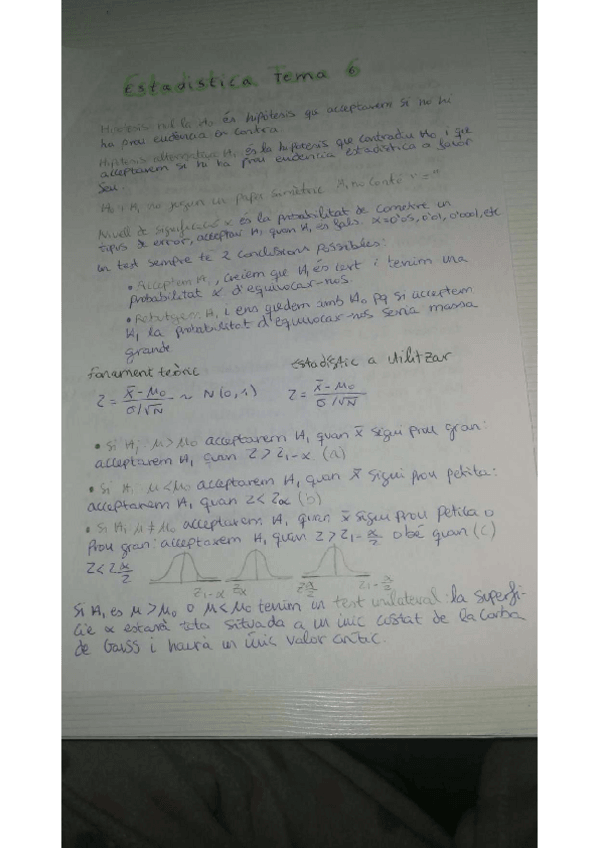 Estadística Tema 6
Hipòtesis nul·la H₀ és hipòtesis que acceptarem si no hi
ha prou evidència en contra.
Hipòtesis alternativa H₁ és la hipòtesis que contradiu H₀ i que
acceptarem si hi ha prou evidència estadística a favor
seu.
H₀ i H₁ no juguen un paper simètric H₁ no conté "="
Nivell de significació α és la probabilitat de cometre un
tipus de error, acceptar H₁ quan H₁ és fals. α=0'05, 0'01, 0'001, etc
un test sempre te 2 conclusions possibles:
• Acceptem H₁, creiem que H₁ és cert i tenim una
probabilitat α d'equivocar-nos.
• Rebutgem H₁ i ens quedem amb H₀ pq si acceptem
H₁ la probabilitat d'equivocar-nos seria massa
grande.
Fonament teòric Estadístic a utilitzar
Z = (x̄ - μ₀)/(σ/√N) ~ N(0,1) Z = (x̄ - μ₀)/(σ/√N)
• Si H₁ μ>μ₀ acceptarem H₁ quan x̄ sigui prou gran:
acceptarem H₁ quan Z > Z₁₋α (a)
• Si H₁ μ<μ₀ acceptarem H₁ quan x̄ sigui prou petita:
acceptarem H₁ quan Z < Zα (b)
• Si H₁ μ ≠ μ₀ acceptarem H₁ quan x̄ sigui prou petita o
prou gran: acceptarem H₁ quan Z > Z₁₋α/2 o bé quan (c)
Z < Zα/2
Z₁₋α Zα Zα/2 Z₁₋α/2
Si H₁ es μ > μ₀ o μ < μ₀ tenim un test unilateral: la superfi-
cie α estarà tota situada a un únic costat de la corba
de Gauss i haurà un únic valor crític.